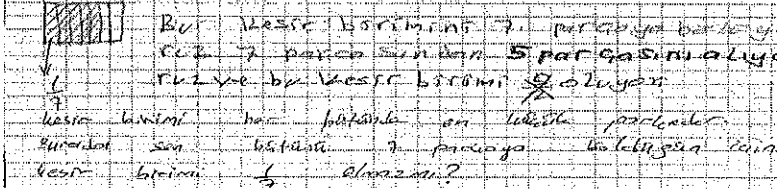 Bu kesir birimini 7 parçaya bölüyo
ruz 7 parçasından 5 parçasını alıyo
1/7 ruz ve bu kesir birimi oluyor
kesir birimi her bütünde en küçük parçadır.
Buradai sen bütünü 7 parçaya böldüğün için
kesir birimi 1/7 olmazmı?